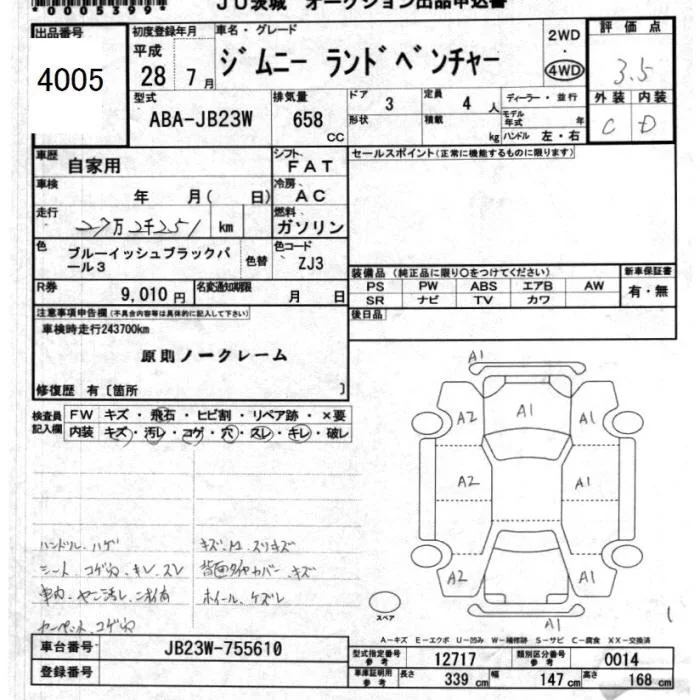 *00053999*
JU茨城 オークション出品申込書
出品番号 4005
初度登録年月 平成 28年 7月
車名・グレード ジムニー ランドベンチャー
2WD ・ 4WD
評価点 3.5
外装 C 内装 D
型式 ABA-JB23W
排気量 658 CC
ドア 3 定員 4 人
形状 積載 kg
ディーラー・並行
モデル年式 年
ハンドル 左・右
車歴 自家用
シフト FAT
セールスポイント(正常に機能するものに限ります)
車検 年 月( 日)
冷房 AC
走行 27万2千251 km
燃料 ガソリン
色 ブルーイッシュブラックパール3 色替
色コード ZJ3
R券 9,010 円
名変通知期限 月 日
装備品(純正品に限り○をつけてください)
PS PW ABS エアB AW
SR ナビ TV カワ
新車保証書 有・無
後日品
注意事項申告欄(不具合内容等は具体的に記入して下さい)
車検時走行243700km
原則ノークレーム
修復歴 有〔箇所 〕
検査員記入欄
FW キズ・飛石・ヒビ割・リペア跡・×要
内装 キズ・汚レ・コゲ・穴・スレ・キレ・破レ
A1
A2 A1 A1
A2 A1
A2 A1
A1
スペア
ハンドル、ハゲ
シート、コゲ穴、キレ、スレ
車内、ヤニ汚レ、ニオイ有
カーペット、コゲ穴
背面タイヤカバー、キズ
ホイール、ケズレ
A-キズ E-エクボ U-凹み W-補修跡 S-サビ C-腐食 XX-交換済
車台番号 JB23W-755610
登録番号
型式指定番号 参考 12717
類別区分番号 参考 0014
車庫証明用 参考 長さ 339 cm 幅 147 cm 高さ 168 cm